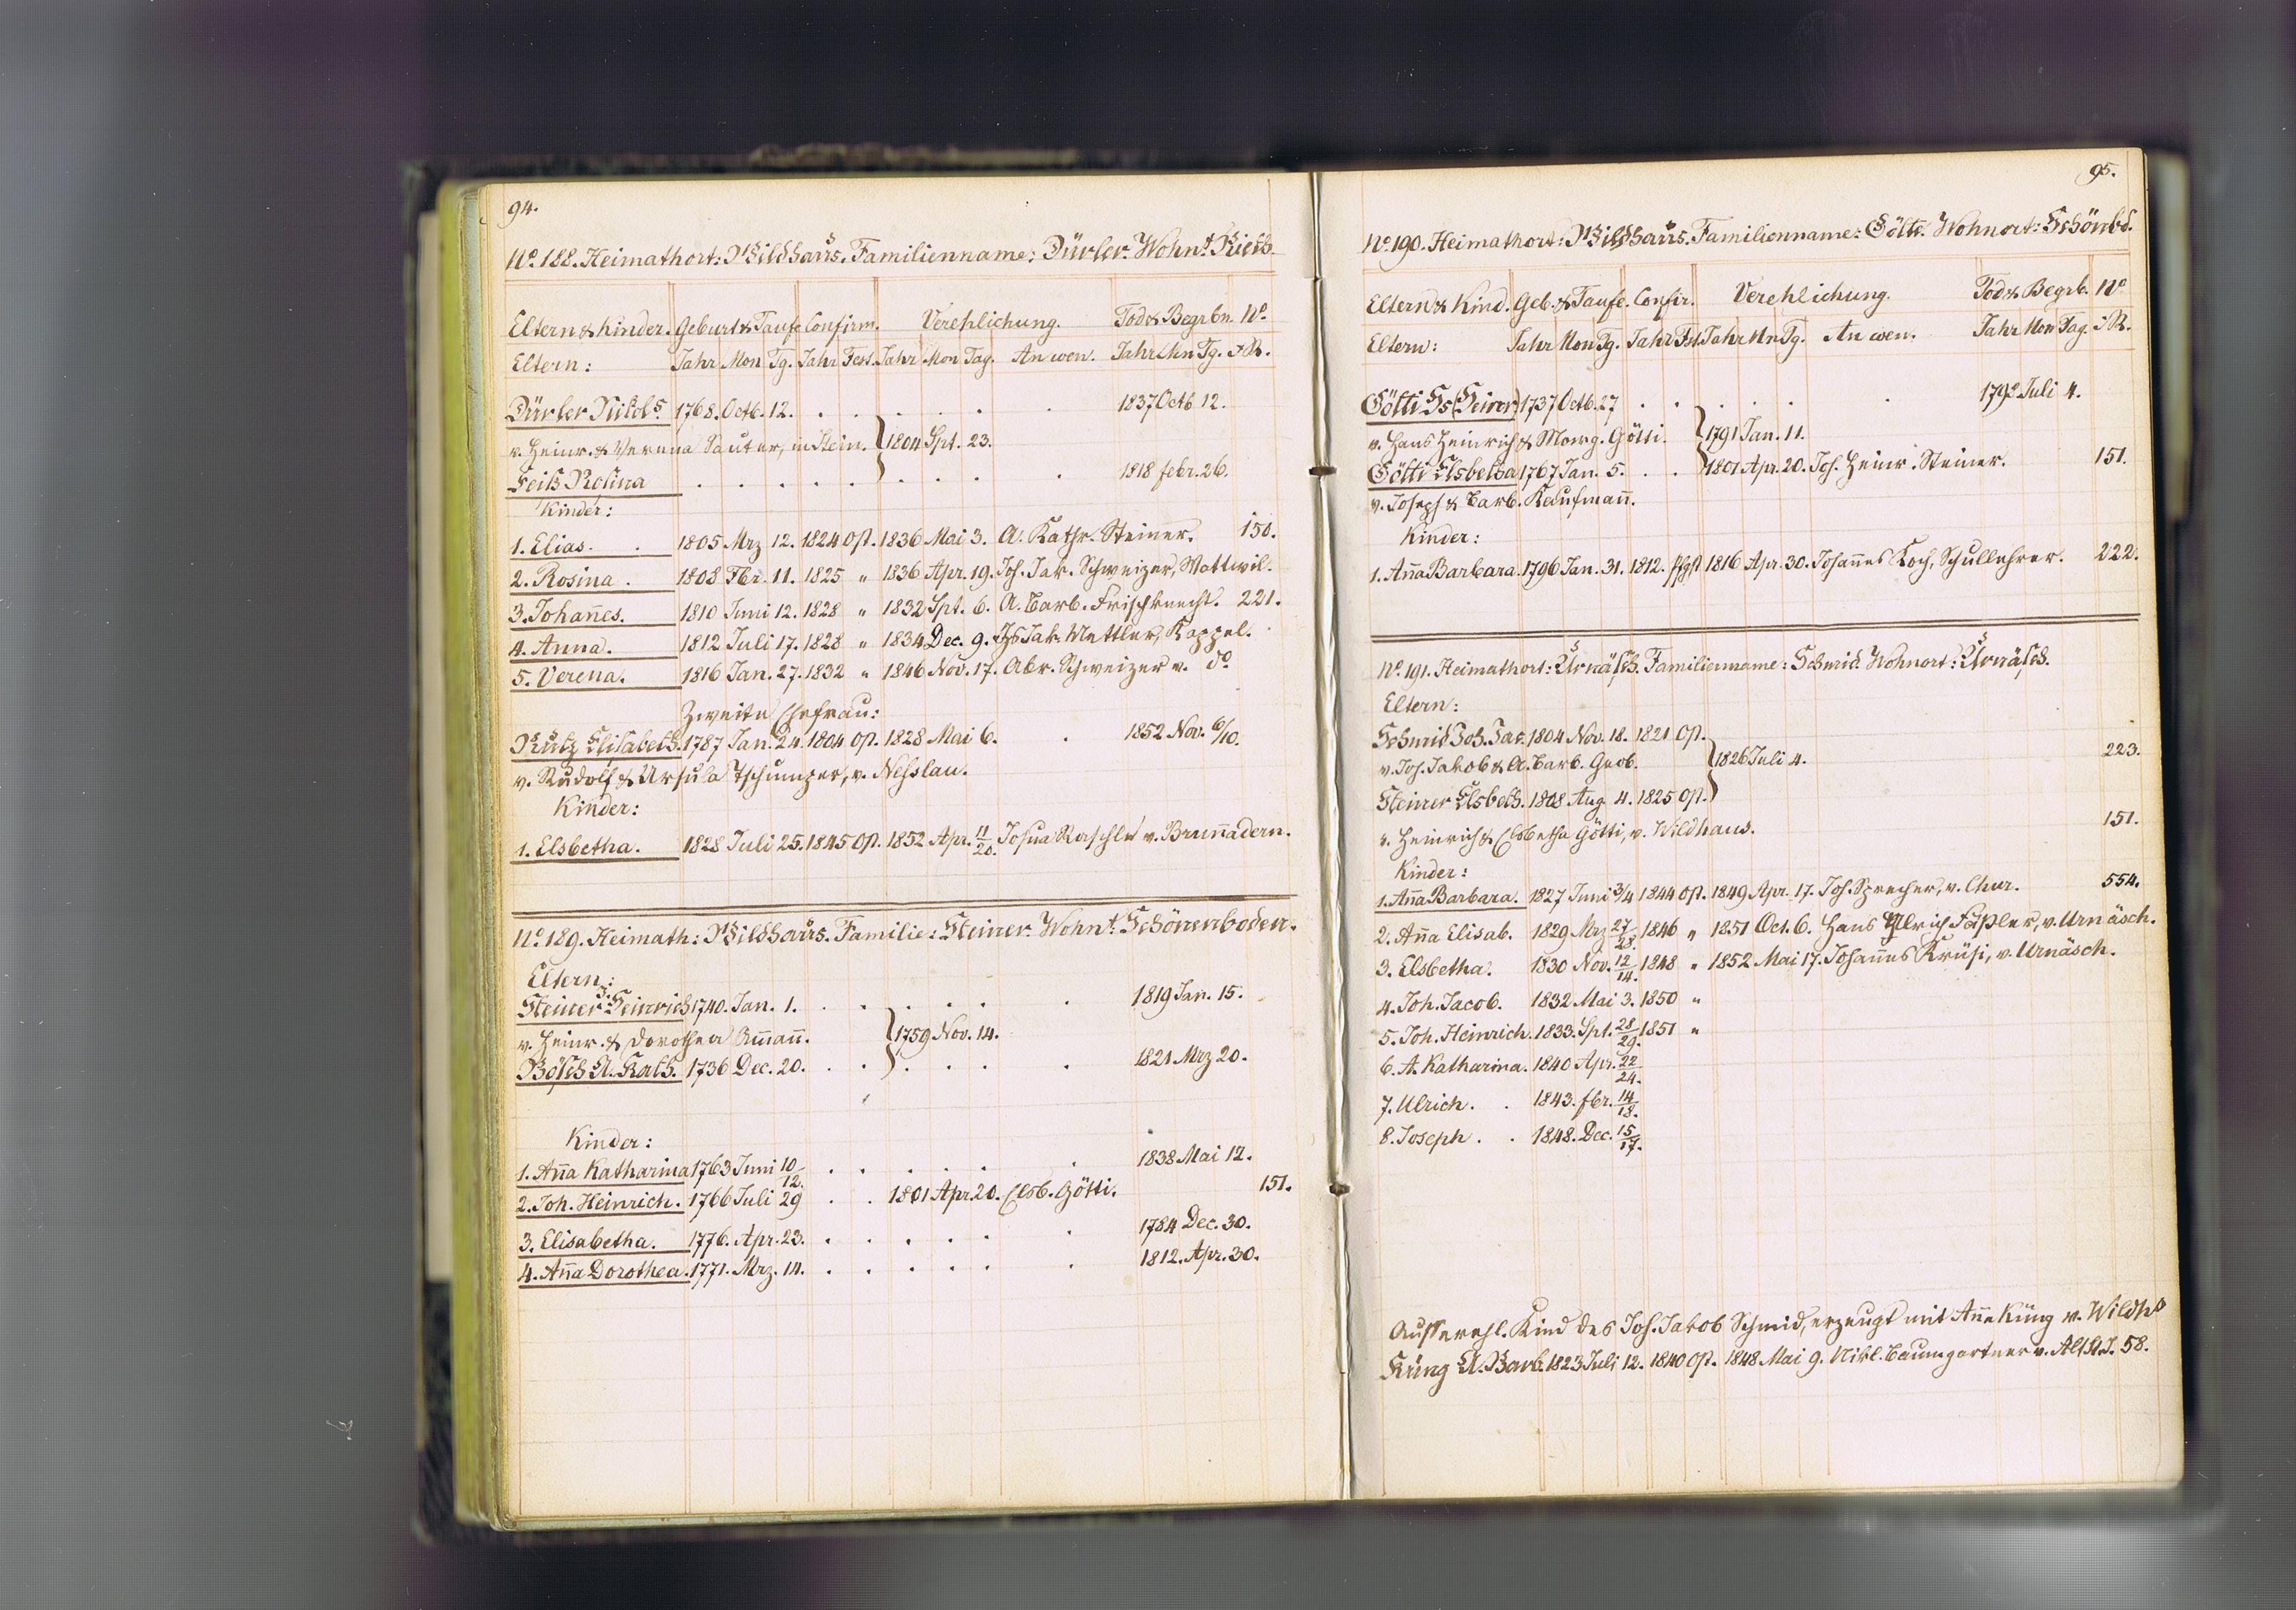 94.
No. 188. Heimathort: Wildhaus. Familienname: Dürler. Wohnt.
Eltern & Kinder. Geburt & Taufe Confirm. Verehlichung. Tod & Begrbn. No.
Eltern: Jahr Mon Tg. Jahr Fest. Jahr Mon Tag. An wen. Jahr Mn Tg. i. R.
Dürler Nikols 1768. Octb. 12. . . . . . . 1837 Octb 12.
v. Heinr. & Verena Sauter, in Stein. } 1804 Spt. 23.
Feiß Rosina . . . . . . . 1818 febr. 26.
Kinder:
1. Elias. . 1805 Mrz 12. 1824 Ost. 1836 Mai 3. A. Kathr. Steiner. 150.
2. Rosina . 1808 Fbr. 11. 1825 " 1836 Apr. 19. Joh. Jak. Schweizer, Wattwil.
3. Johañes. 1810 Juni 12. 1828 " 1832 Spt. 6. A. Barb. Frischknecht. 221.
4. Anna. 1812 Juli 17. 1828 " 1834 Dec. 9. Hs Jak. Mettler, Kappel.
5. Verena. 1816 Jan. 27. 1832 " 1846 Nov. 17. Abr. Schweizer v. do
Zweite Ehefrau:
Rutz Elisabeth. 1787 Jan. 24. 1804 Ost. 1828 Mai 6. . 1852 Nov. 6/10.
v. Rudolf & Ursula Tschumper, v. Nesslau.
Kinder:
1. Elsbetha. 1828 Juli 25. 1845 Ost. 1852 Apr. 11/20. Josua Raschle v. Bruñadern.
No. 189. Heimath: Wildhaus. Familie: Steiner. Wohnt. Schönenboden.
Eltern:
Steiner Heinrich 1740. Jan. 1. . . . . . . 1819 Jan. 15.
v. Heinr. & Dorothea Am̃añ. } 1759 Nov. 14.
Bösch A. Kath. 1736 Dec. 20. . . . . . . 1821 Mrz 20.
Kinder:
1. Aña Katharina 1763 Juni 10/12. . . . . . . 1838 Mai 12.
2. Joh. Heinrich. 1766 Juli 29 . . 1801 Apr. 20. Elsb. Götti. 151.
3. Elisabetha. 1776. Apr. 23. . . . . . . 1784 Dec. 30.
4. Aña Dorothea. 1771. Mrz. 14. . . . . . . 1812. Apr. 30.
95.
No. 190. Heimathort: Wildhaus. Familienname: Götti. Wohnort: Schönbd.
Eltern & Kind. Geb. & Taufe. Confir. Verehlichung. Tod & Begrb. No
Eltern: Jahr Mon Tg. Jahr Fst. Jahr Mn Tg. An wen. Jahr Mon Tag. i R.
Götti Hs (Heinr) 1737 Octb. 27 . . . . . . 1792 Juli 4.
v. Hans Heinrich & Marg. Götti. } 1791 Jan. 11.
Götti Elsbetha 1767 Jan. 5. . . 1801 Apr. 20. Joh. Heinr. Steiner. 151.
v. Joseph & Barb. Kaufmañ.
Kinder:
1. Aña Barbara. 1796 Jan. 31. 1812. Pfgst 1816 Apr. 30. Johañes Koch, Schullehrer. 222.
No. 191. Heimathort: Urnäsch. Familienname: Schmid. Wohnort: Urnäsch.
Eltern:
Schmid Joh. Jac. 1804 Nov. 18. 1821 Ost.
v. Joh. Jakob & A. Barb. Grob. } 1826 Juli 4. 223.
Steiner Elsbeth. 1808 Aug. 4. 1825 Ost.
v. Heinrich & Elsbetha Götti, v. Wildhaus. 151.
Kinder:
1. Aña Barbara. 1827 Juni 3/4 1844 Ost. 1849 Apr. 17. Joh. Sprecher, v. Chur. 554.
2. Aña Elisab. 1829 Mrz 27/28. 1846 " 1851 Oct. 6. Hans Ulrich Faßler, v. Urnäsch.
3. Elsbetha. 1830 Nov. 12/14. 1848 " 1852 Mai 17. Johañes Krüsi, v. Urnäsch.
4. Joh. Jacob. 1832 Mai 3. 1850 "
5. Joh. Heinrich. 1833. Spt. 28/29. 1851 "
6. A. Katharina. 1840 Apr. 22/24.
7. Ulrich. . 1843. fbr. 14/18.
8. Joseph . . 1848. Dec. 15/17.
Ausserehl. Kind des Joh. Jakob Schmid, erzeugt mit Aña Küng v. Wildhs
Küng A. Barb. 1823 Juli 12. 1840 Ost. 1848 Mai 9. Nikl. Baumgartner v. Alt St. J. 58.